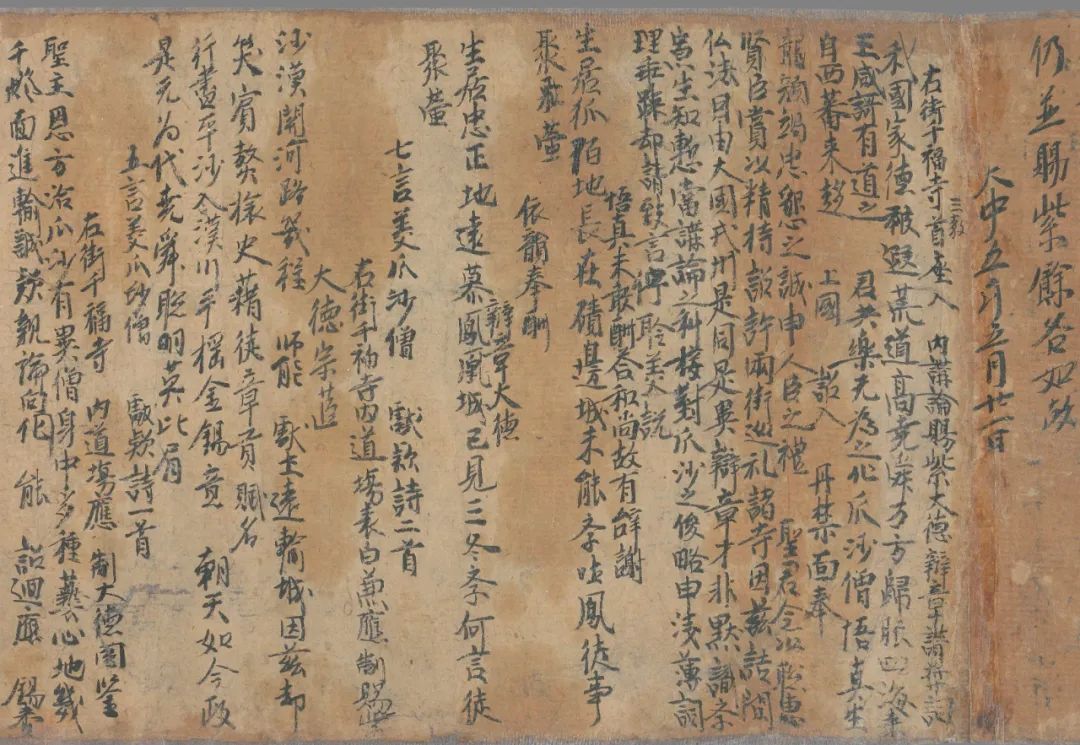 仍並賜紫餘各如故
大中五年五月廿一日
右街千福寺三教首座入 內講論賜紫大德辯章讚獎詞
我國家德被遐荒道高堯舜万方歸服四海來
王咸謌有道之 君共樂无為之化瓜沙僧悟真生
自西蕃來趍 上國 詔入 丹禁面奉
龍顏竭忠懇之誠申人臣之禮 聖君念以聰慧
賢臣賞以精持詔許兩街巡礼諸寺因茲詰問
仏法因由大國戎州是同是異辯章才非默識學
寡生知慙當講論之科接對瓜沙之俊略申淺薄詞
理乖疎却請致言俾聆美說
悟真未敢酬答和尚故有辞謝
生居狐陌地長在磧邊城未能學吐鳳徒事
聚飛螢
依韻奉酬 辯章大德
生居忠正地遠慕鳳凰城已見三冬學何言徒
聚螢
七言美瓜沙僧 獻款詩二首
右街千福寺內道場表白兼應制賜紫
大德宗茝
沙漠關河路幾程 師能 獻土遠輸城因茲却
笑賓獒旅史籍徒章貢賦名
行盡平沙入漢川手搖金錫意 朝天如今政
是无為代堯舜聰明英比肩
五言美瓜沙僧 獻款詩一首
右街千福寺 內道場應 制大德圓鑒
聖主恩方洽瓜沙有異僧身中多種藝心地幾
千燈面進輸誠款親論向化能 詔迴應 錫賚